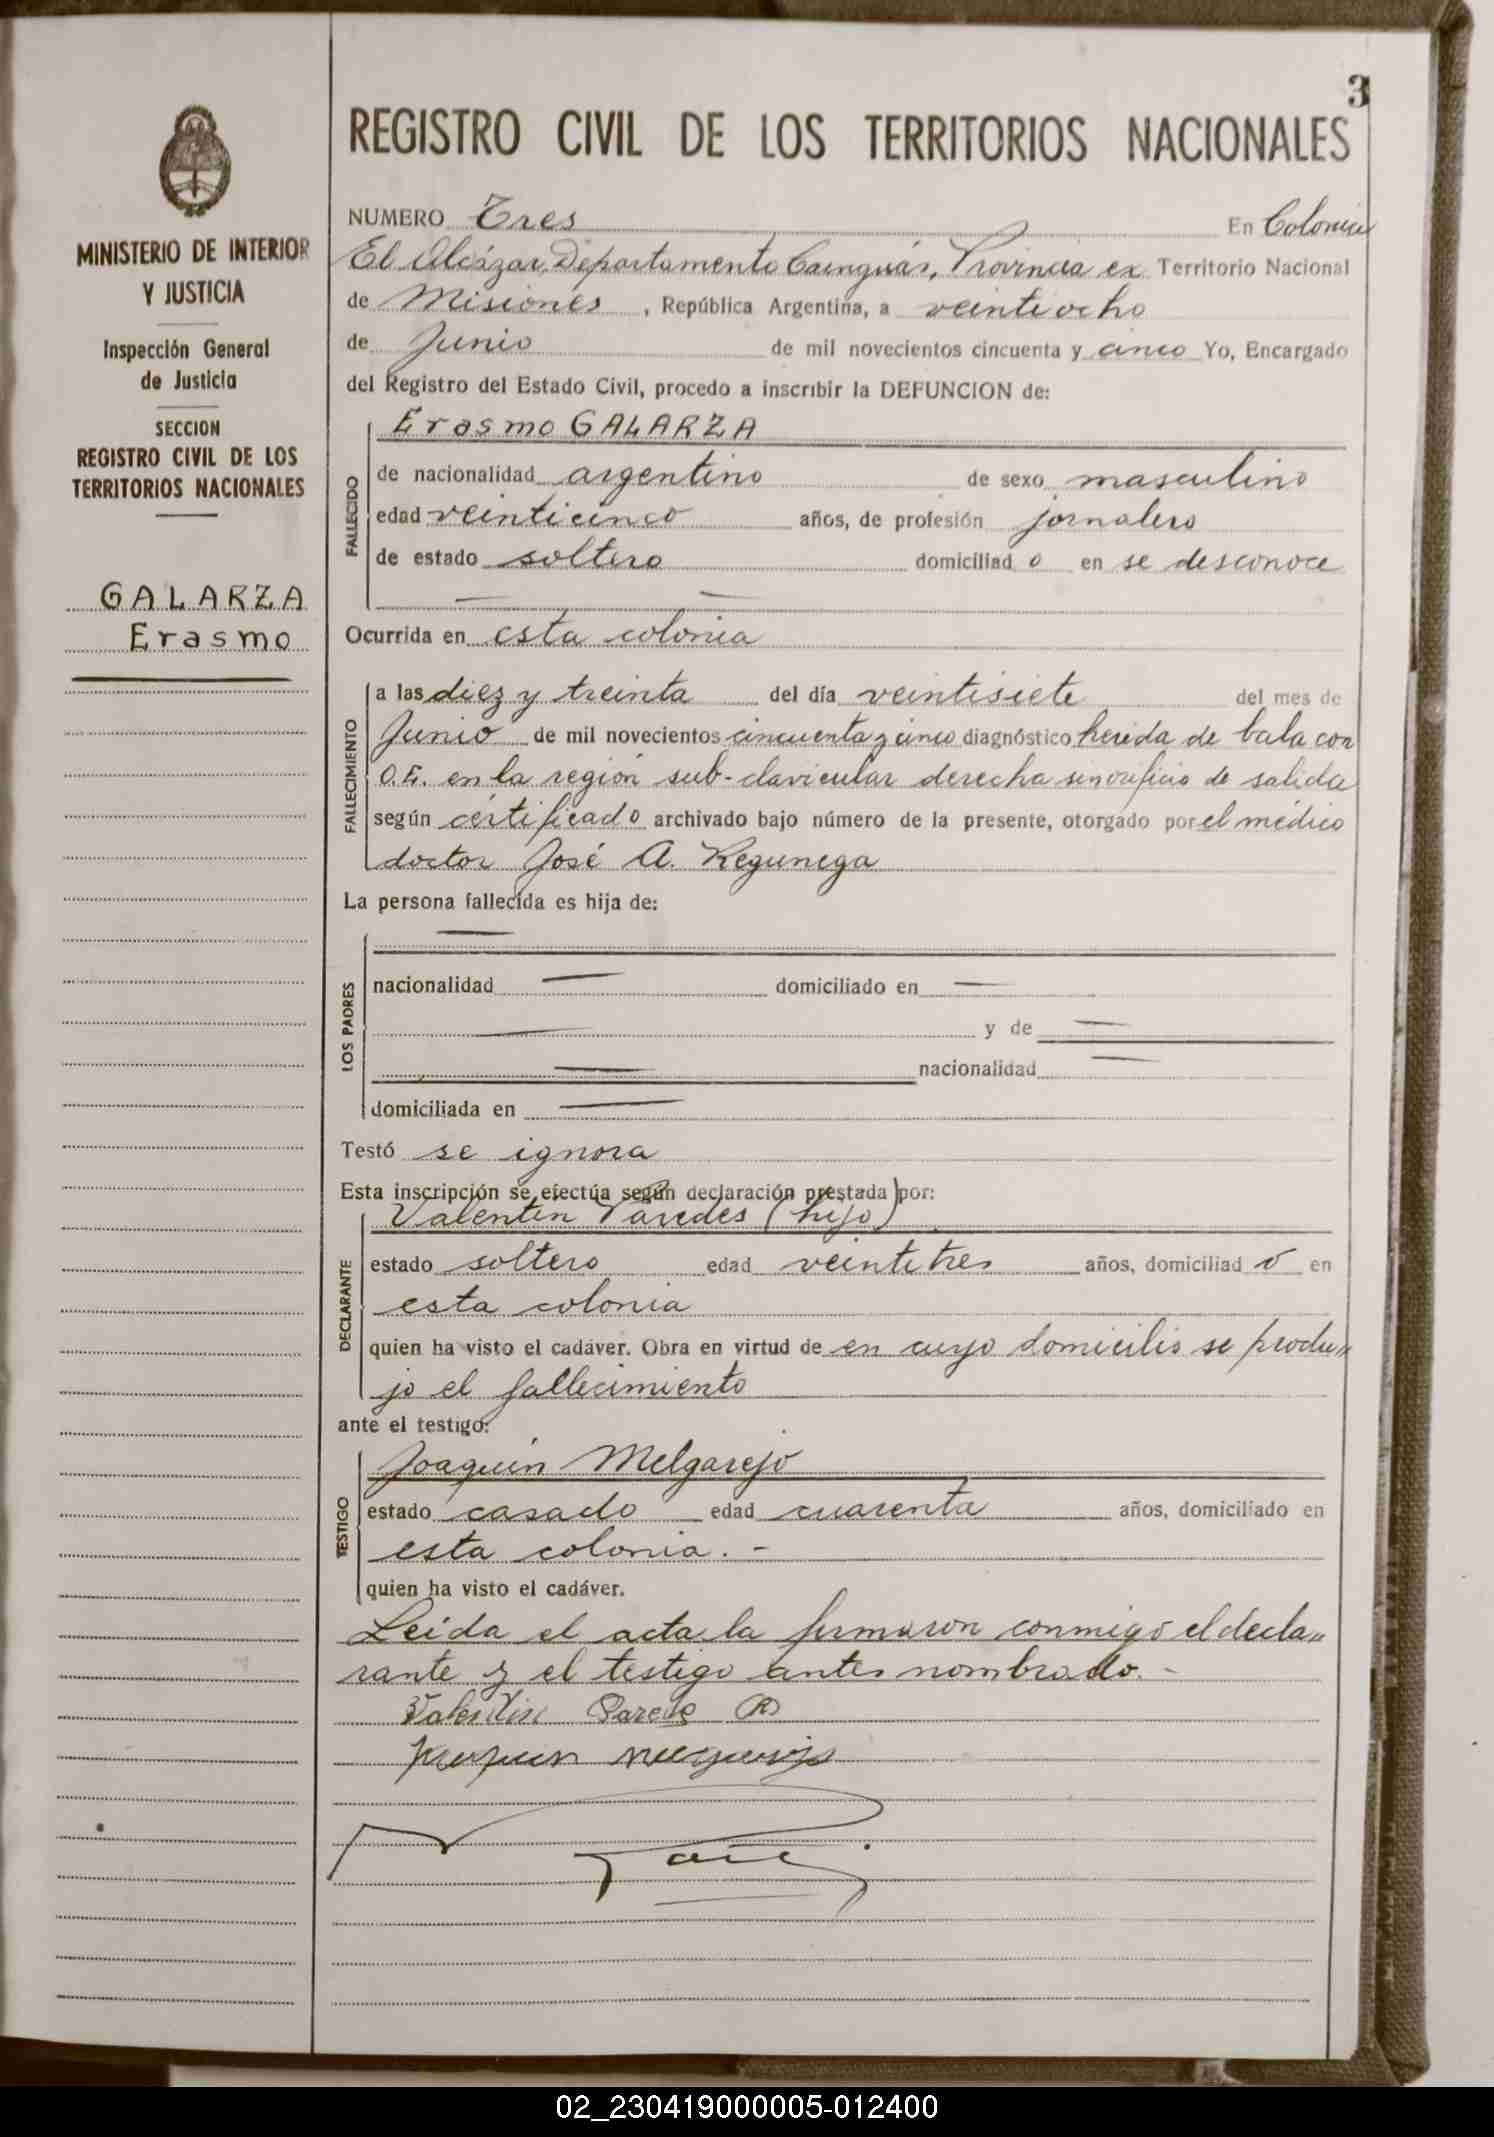 3
REGISTRO CIVIL DE LOS TERRITORIOS NACIONALES
MINISTERIO DE INTERIOR
Y JUSTICIA
Inspección General
de Justicia
SECCION
REGISTRO CIVIL DE LOS
TERRITORIOS NACIONALES
GALARZA
Erasmo
NUMERO Tres En Colonia
El Alcázar, Departamento Cainguás, Provincia ex Territorio Nacional
de Misiones, República Argentina, a veintiocho
de Junio de mil novecientos cincuenta y cinco Yo, Encargado
del Registro del Estado Civil, procedo a inscribir la DEFUNCION de:
FALLECIDO
Erasmo GALARZA
de nacionalidad argentino de sexo masculino
edad veinticinco años, de profesión jornalero
de estado soltero domiciliad o en se desconoce
Ocurrida en esta colonia
FALLECIMIENTO
a las diez y treinta del día veintisiete del mes de
Junio de mil novecientos cincuenta y cinco diagnóstico herida de bala con
O.E. en la región sub-clavicular derecha sin orificio de salida
según certificado archivado bajo número de la presente, otorgado por el médico
doctor José A. Regunega
La persona fallecida es hija de:
LOS PADRES
nacionalidad — domiciliado en —
— y de —
— nacionalidad —
domiciliada en —
Testó se ignora
Esta inscripción se efectúa según declaración prestada por:
DECLARANTE
Valentin Paredes (hijo)
estado soltero edad veintitres años, domiciliad o en
esta colonia
quien ha visto el cadáver. Obra en virtud de en cuyo domicilio se produ"
jo el fallecimiento
ante el testigo:
TESTIGO
Joaquin Melgarejo
estado casado edad cuarenta años, domiciliado en
esta colonia. -
quien ha visto el cadáver.
Leida el acta la firmaron conmigo el decla"
rante y el testigo antes nombrado. -
Valentin Parede
02_230419000005-012400